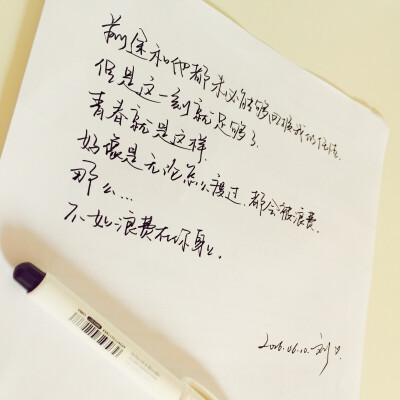 前途和他都未必能够回报我的任性.
但是这一刻就足够了.
青春就是这样.
好坏是无论怎么度过.都会被浪费.
那么...
不如浪费在你身上.
2016.06.10.刘